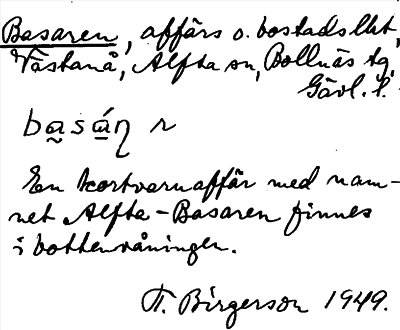 Basaren, affärs o. bostadslht,
Västanå, Alfta sn, Bollnäs tg,
Gävl. l.
ba̰sá̱ɳ r
En kortvaruaffär med nam-
net Alfta-Basaren finnes
i bottenvåningen.
T. Birgerson 1949.